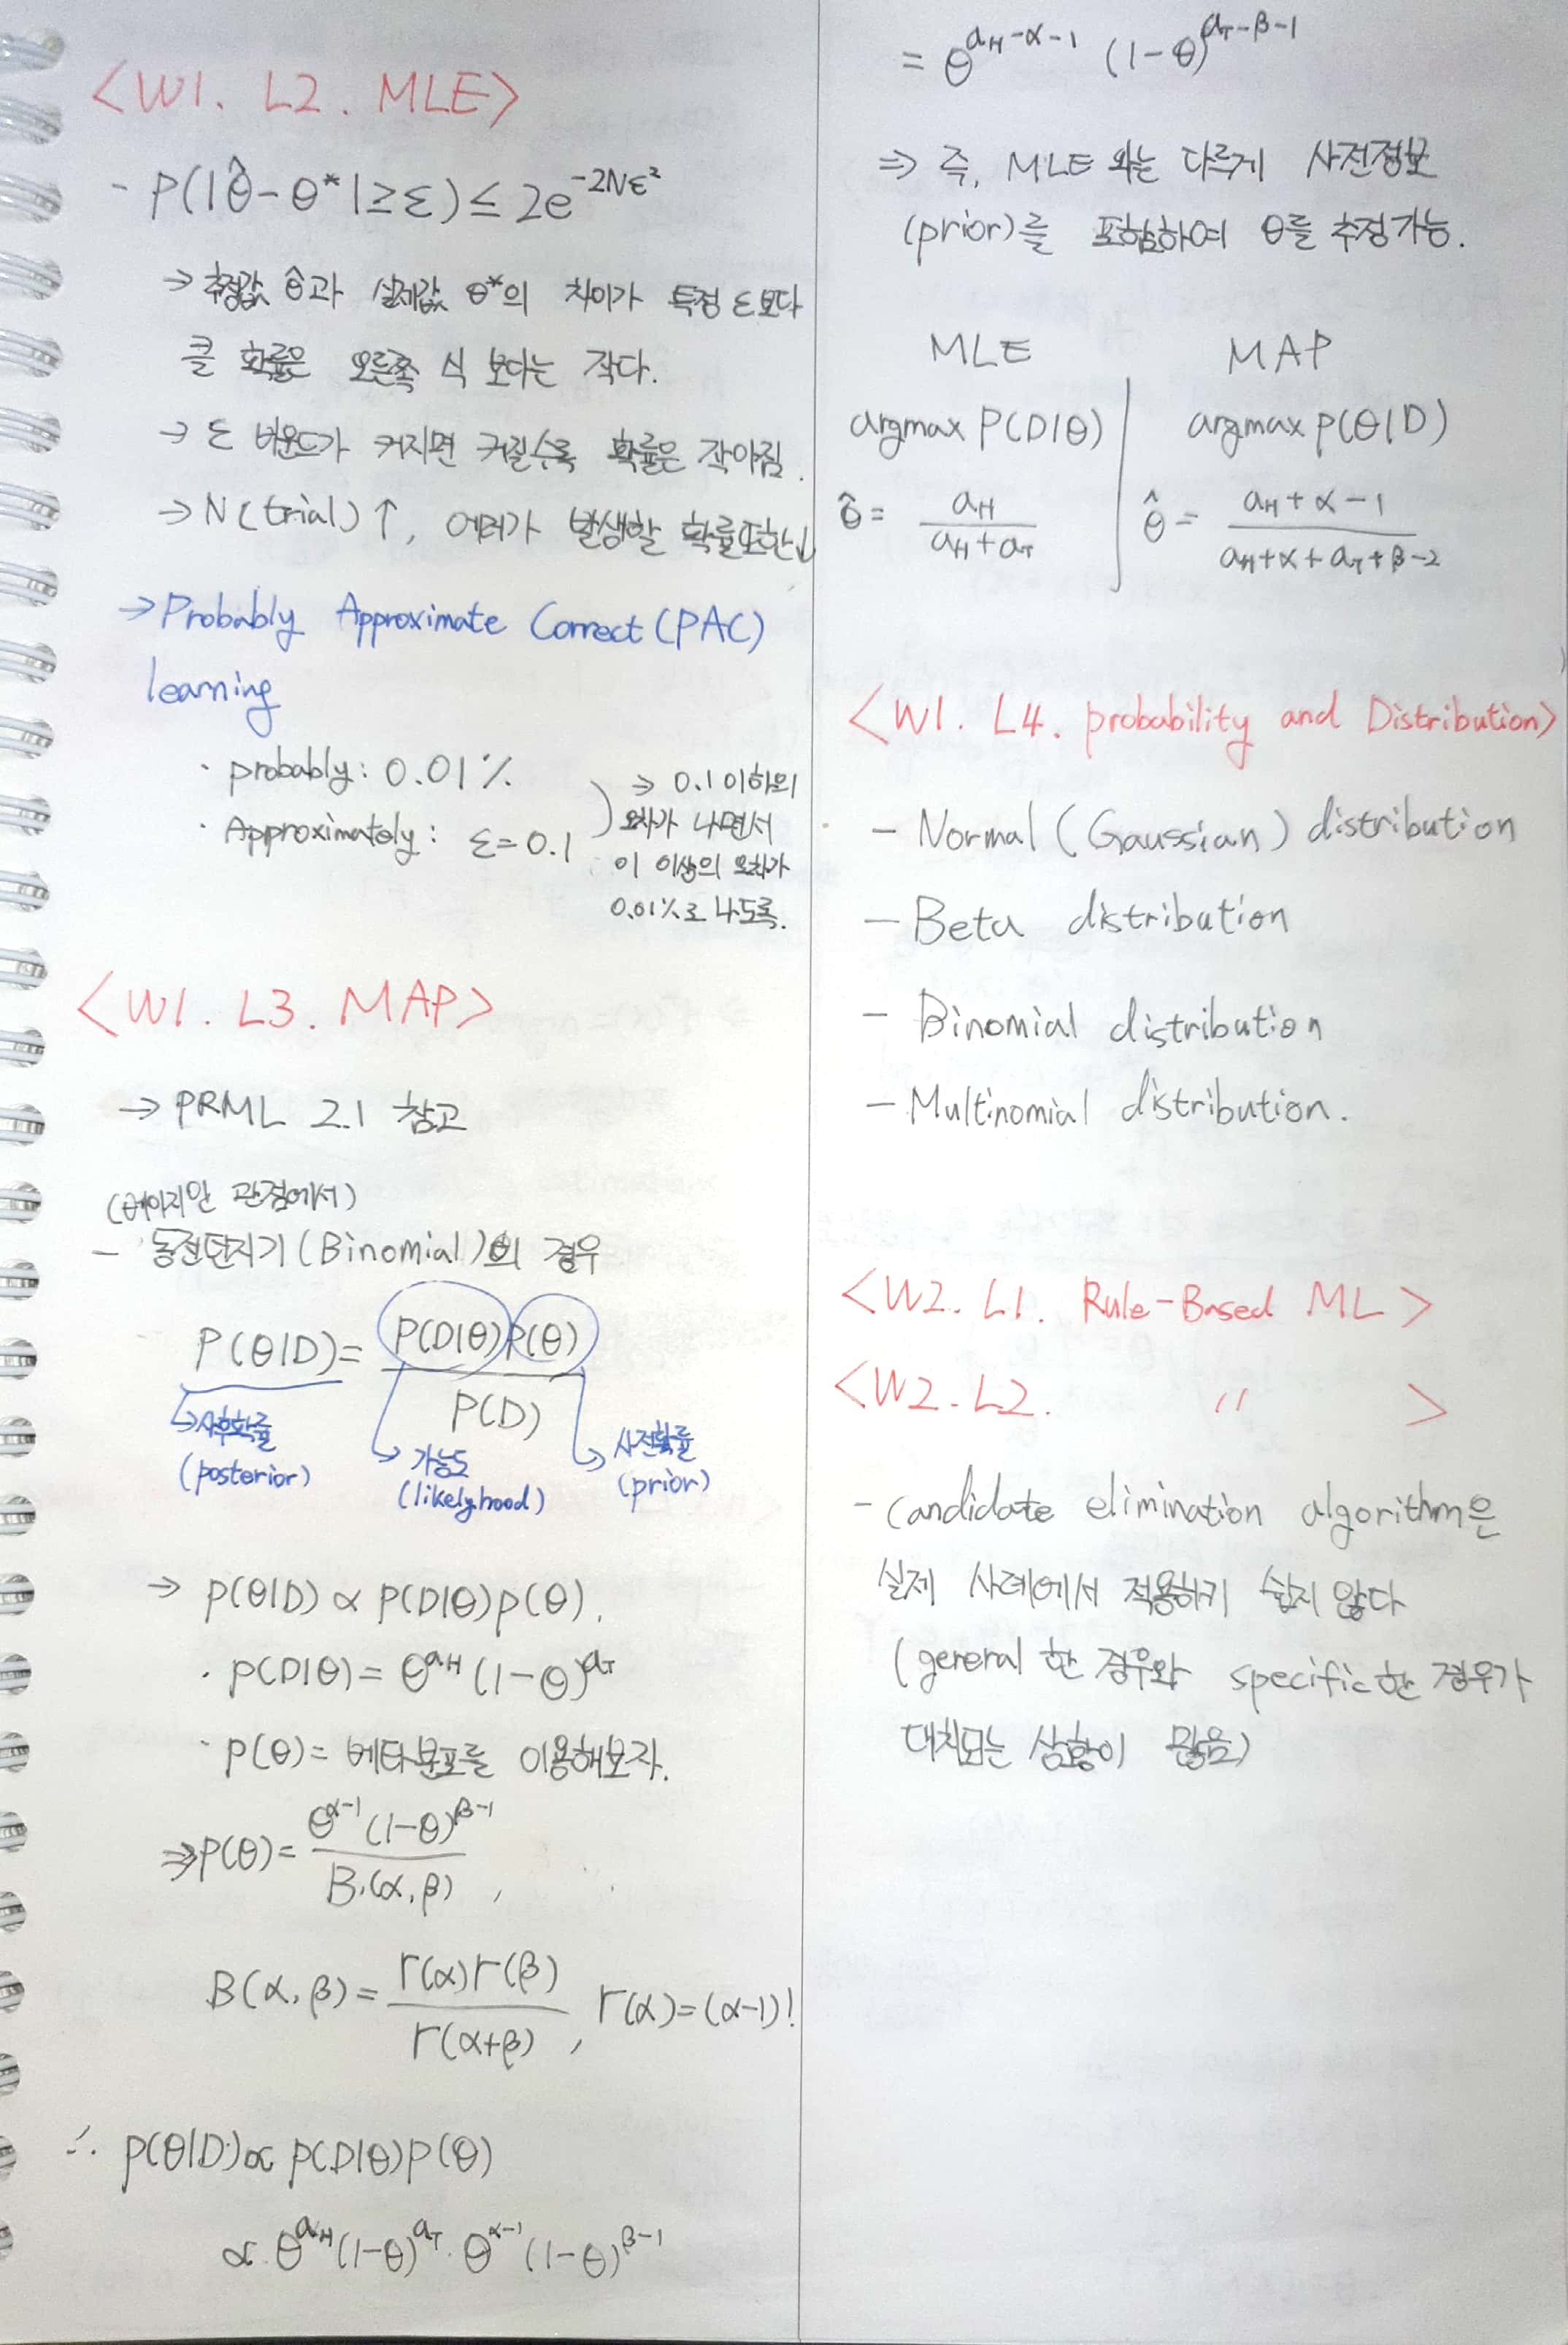 <W1. L2. MLE>
- P(|θ̂-θ*|≥ε)≤2e^{-2Nε²}
→ 추정값 θ̂과 실제값 θ*의 차이가 특정 ε보다
클 확률은 오른쪽 식 보다는 작다.
→ ε 바운드가 커지면 커질수록 확률은 작아짐.
→ N(trial)↑, 에러가 발생할 확률또한↓
→ Probably Approximate Correct(PAC)
learning
· probably: 0.01%
· Approximately: ε=0.1
⇒ 0.1 이하의
오차가 나면서
이 이상의 오차가
0.01%로 나도록.
<W1. L3. MAP>
→ PRML 2.1 참고
(베이지안 관점에서)
- 동전던지기(Binomial)의 경우
P(θ|D)= P(D|θ)P(θ) / P(D)
↳사후확률
(posterior)
→ 가능도
(likelyhood)
→ 사전확률
(prior)
→ P(θ|D) ∝ P(D|θ)p(θ).
· P(D|θ)= θ^{a_H}(1-θ)^{a_T}
· P(θ)= 베타분포를 이용해보자.
⇒P(θ)= θ^{α-1}(1-θ)^{β-1} / B(α,β) ,
B(α,β)= Γ(α)Γ(β) / Γ(α+β) , Γ(α)=(α-1)!
∴ P(θ|D)∝ P(D|θ)P(θ)
∝ θ^{a_H}(1-θ)^{a_T}·θ^{α-1}(1-θ)^{β-1}
= θ^{a_H-α-1} (1-θ)^{a_T-β-1}
⇒ 즉, MLE 와는 다르게 사전정보
(prior)를 포함하여 θ를 추정가능.
MLE MAP
argmax P(D|θ) argmax P(θ|D)
θ̂= a_H / a_H+a_T θ̂= a_H+α-1 / a_H+α+a_T+β-2
<W1. L4. probability and Distribution>
- Normal (Gaussian) distribution
- Beta distribution
- Binomial distribution
- Multinomial distribution.
<W2. L1. Rule-Based ML>
<W2. L2. 〃 >
- Candidate elimination algorithm은
실제 사례에서 적용하기 쉽지 않다
(general 한 경우와 specific한 경우가
대치되는 상황이 많음)